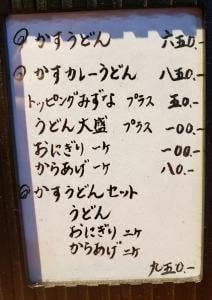 かすうどん 六五〇.-
かすカレーうどん 八五〇.-
トッピングみずな プラス 五〇.-
うどん大盛 プラス 一〇〇.-
おにぎり 一ケ 一〇〇.-
からあげ 一ケ 八〇.-
かすうどんセット
うどん
おにぎり 二ケ
からあげ 二ケ
九五〇.-